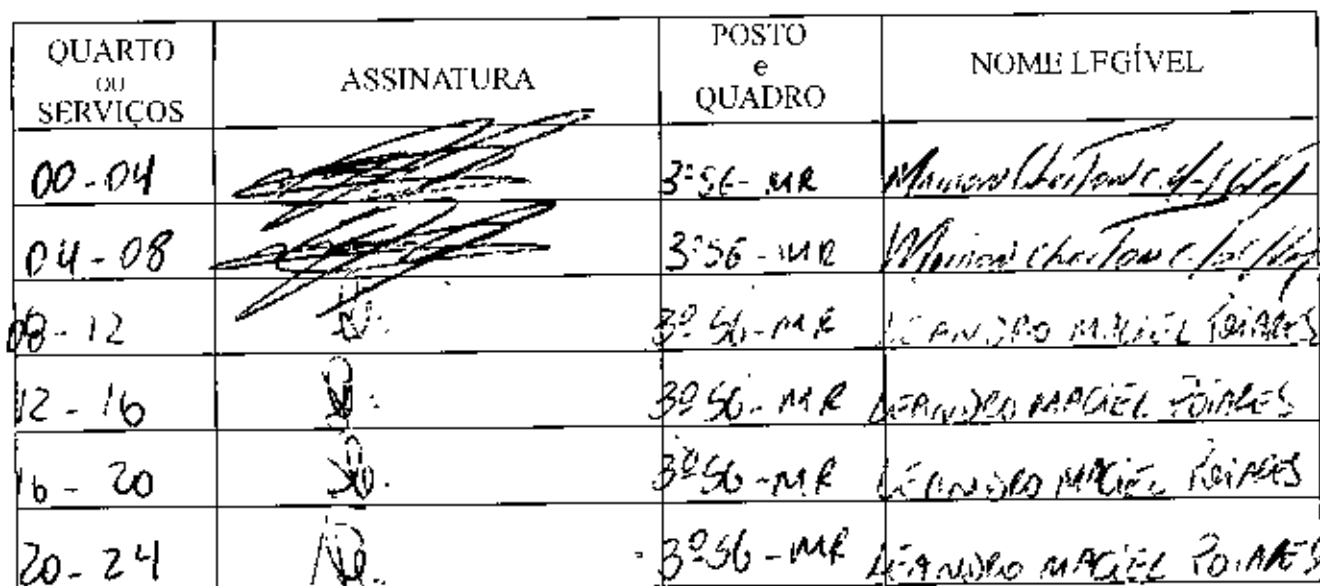 QUARTO
OU
SERVIÇOS
ASSINATURA
POSTO
e
QUADRO
NOME LEGÍVEL
00-04 3º SG-MR
04-08 3º SG-MR
08-12 3º SG-MR LEANDRO MACIEL POIARES
12-16 3º SG-MR LEANDRO MACIEL POIARES
16-20 3º SG-MR LEANDRO MACIEL POIARES
20-24 3º SG-MR LEANDRO MACIEL POIARES